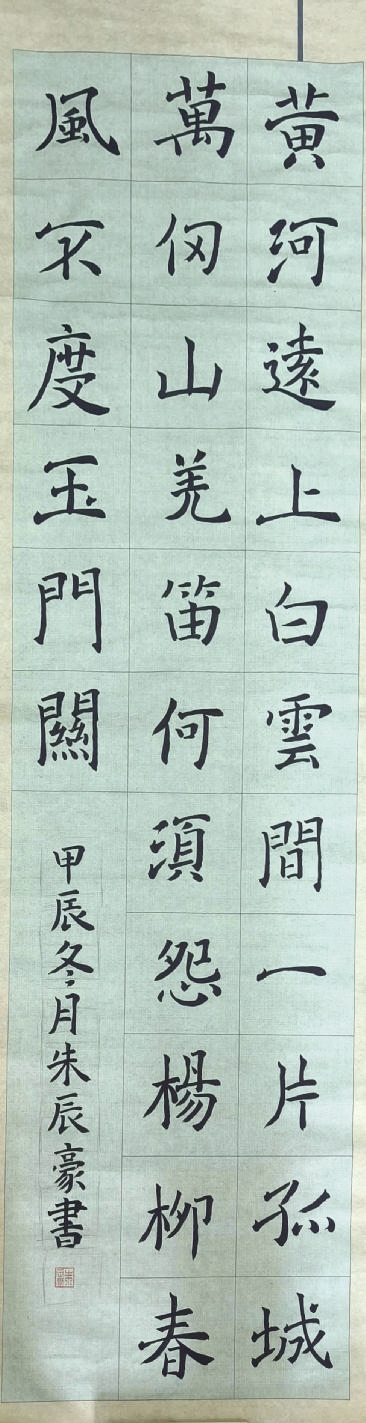 黄河遠上白雲間一片孤城
萬仞山羌笛何須怨楊柳春
風不度玉門關
甲辰冬月朱辰豪書